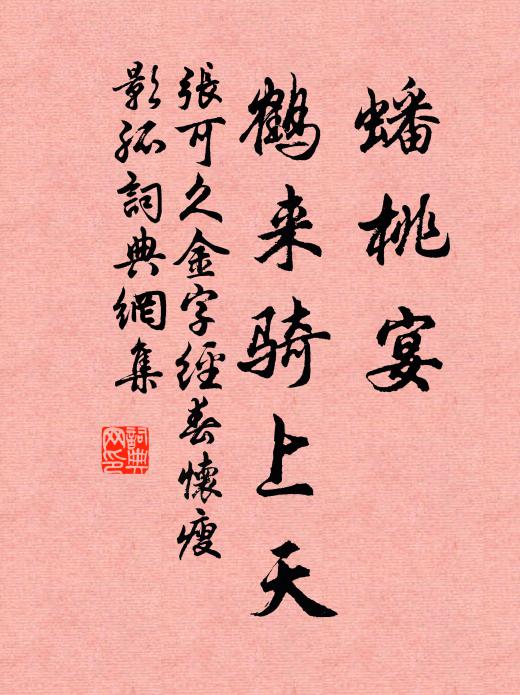 蟠桃宴
鹤来骑上天
張可久金字經春懷瘦
影孤詞典網集
詞典網印